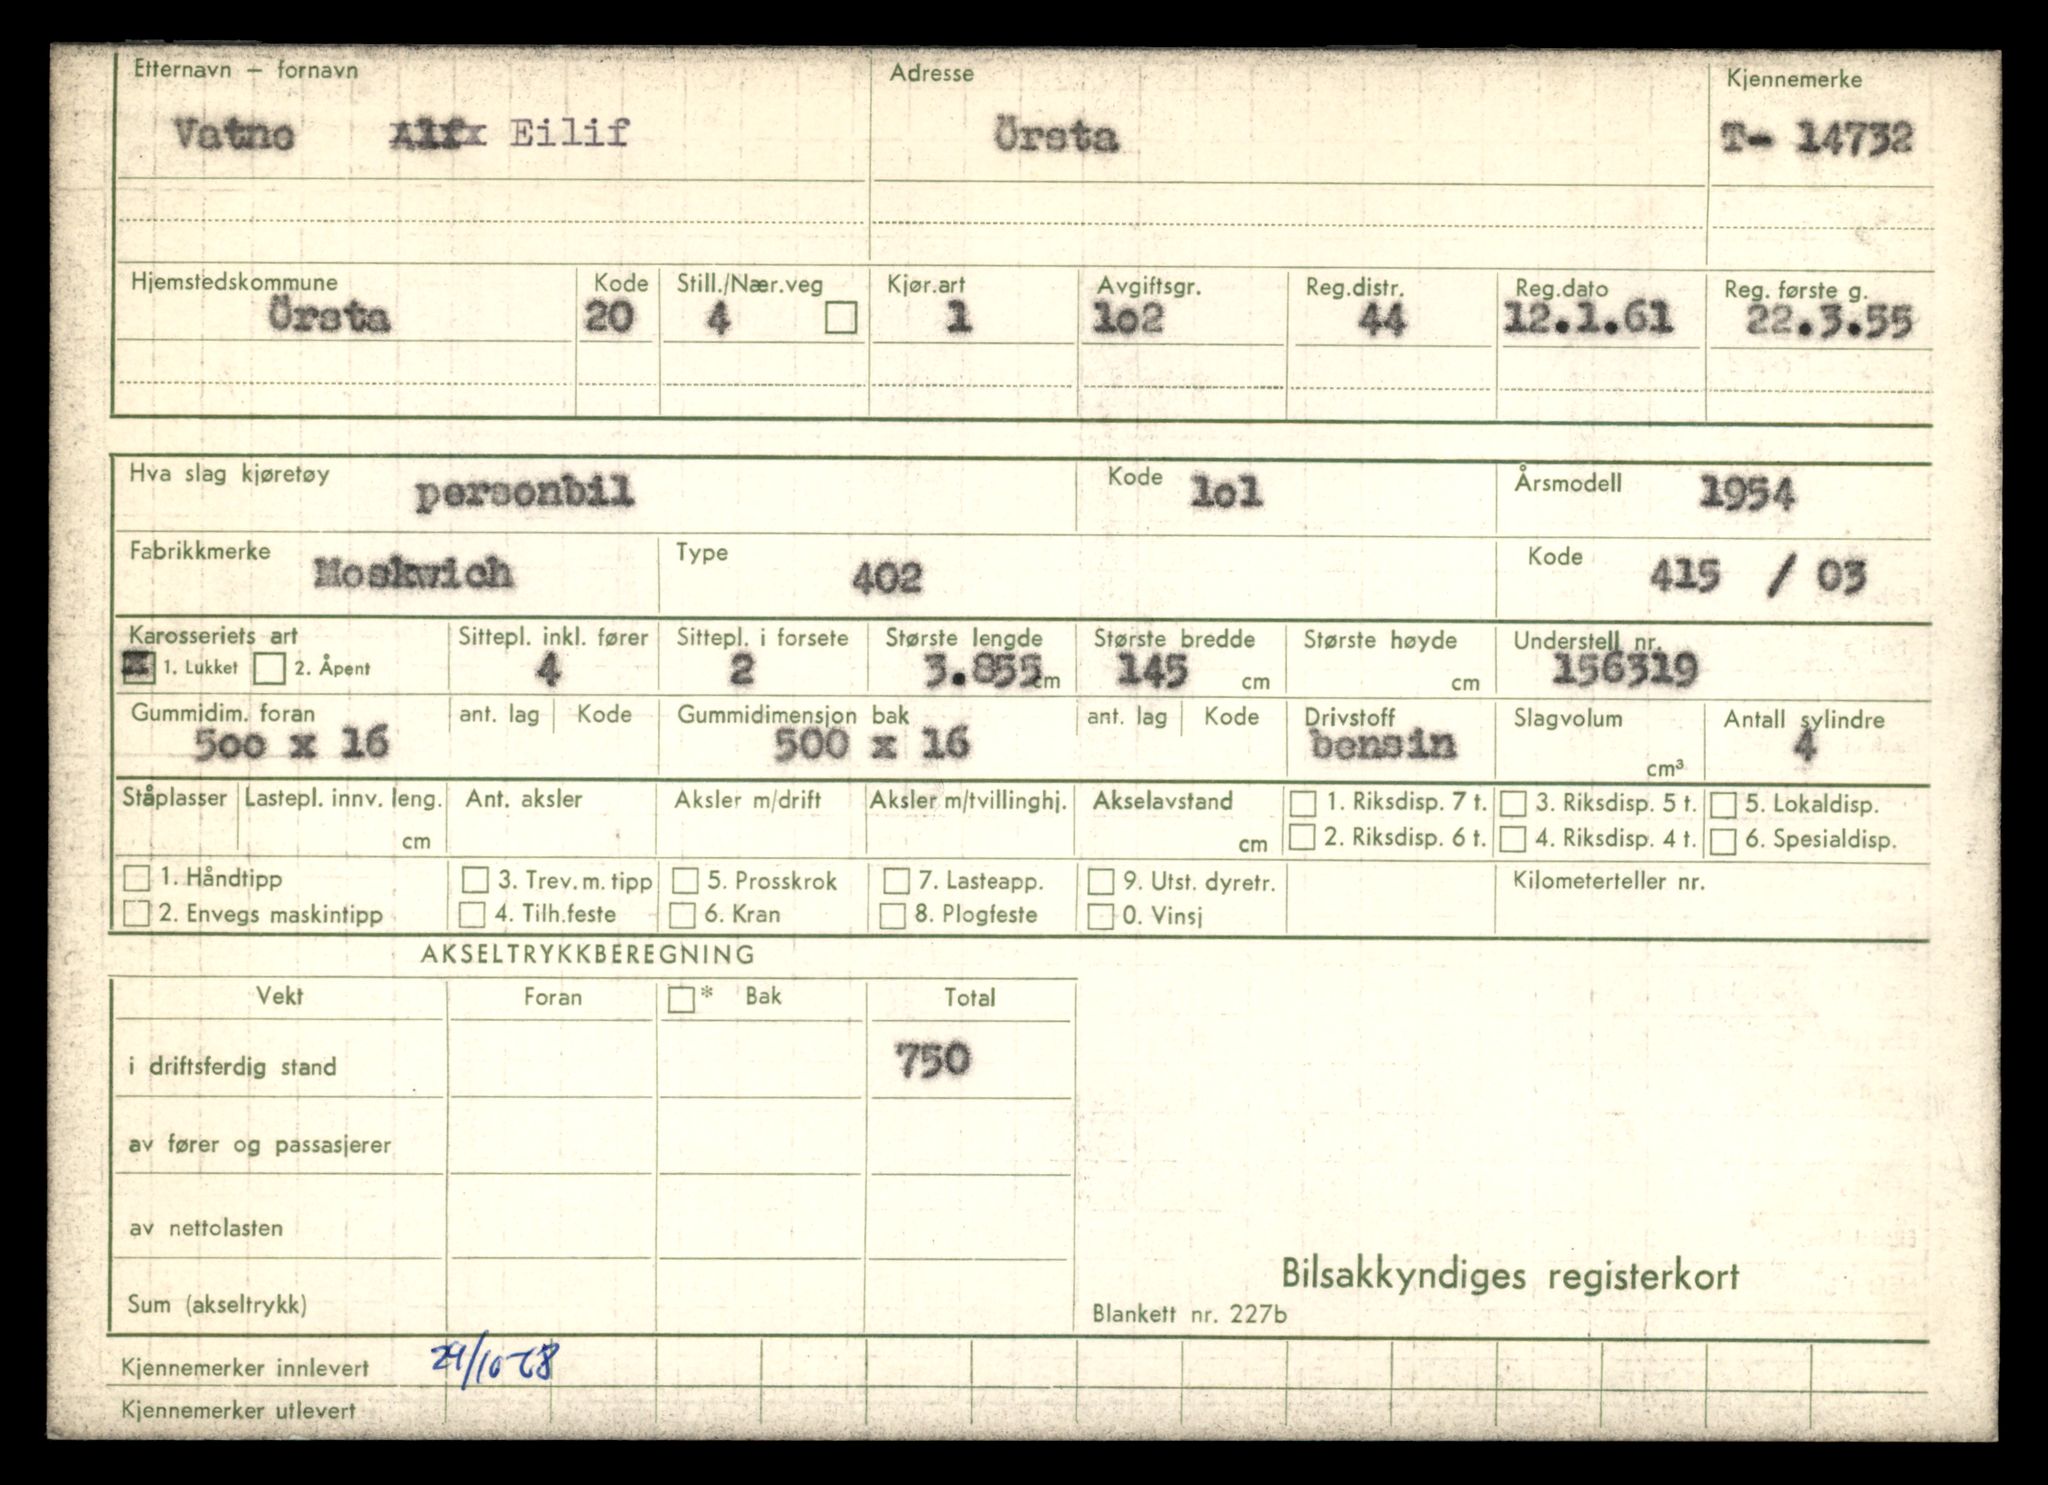 Etternavn – fornavn Adresse Kjennemerke
Vatne Alfx Eilif Örsta T- 14732
Hjemstedskommune Kode Still./Nær.veg Kjør.art Avgiftsgr. Reg.distr. Reg.dato Reg. første g.
Örsta 20 4 1 1o2 44 12.1.61 22.3.55
Hva slag kjøretøy personbil Kode 1o1 Årsmodell 1954
Fabrikkmerke Moskwich Type 402 Kode 415 / 03
Karosseriets art Sittepl. inkl. fører Sittepl. i forsete Største lengde Største bredde Største høyde Understell nr.
x 1. Lukket 2. Åpent 4 2 3.855 cm 145 cm cm 156319
Gummidim. foran ant. lag Kode Gummidimensjon bak ant. lag Kode Drivstoff Slagvolum Antall sylindre
5oo x 16 500 x 16 bensin cm³ 4
Ståplasser Lastepl. innv. leng. Ant. aksler Aksler m/drift Aksler m/tvillinghj. Akselavstand 1. Riksdisp. 7 t. 3. Riksdisp. 5 t. 5. Lokaldisp.
cm cm 2. Riksdisp. 6 t. 4. Riksdisp. 4 t. 6. Spesialdisp.
1. Håndtipp 3. Trev. m. tipp 5. Prosskrok 7. Lasteapp. 9. Utst. dyretr. Kilometerteller nr.
2. Envegs maskintipp 4. Tilh.feste 6. Kran 8. Plogfeste 0. Vinsj
AKSELTRYKKBEREGNING
Vekt Foran * Bak Total
i driftsferdig stand 750
av fører og passasjerer
av nettolasten
Sum (akseltrykk)
Bilsakkyndiges registerkort
Blankett nr. 227b
Kjennemerker innlevert 24/10-68
Kjennemerker utlevert